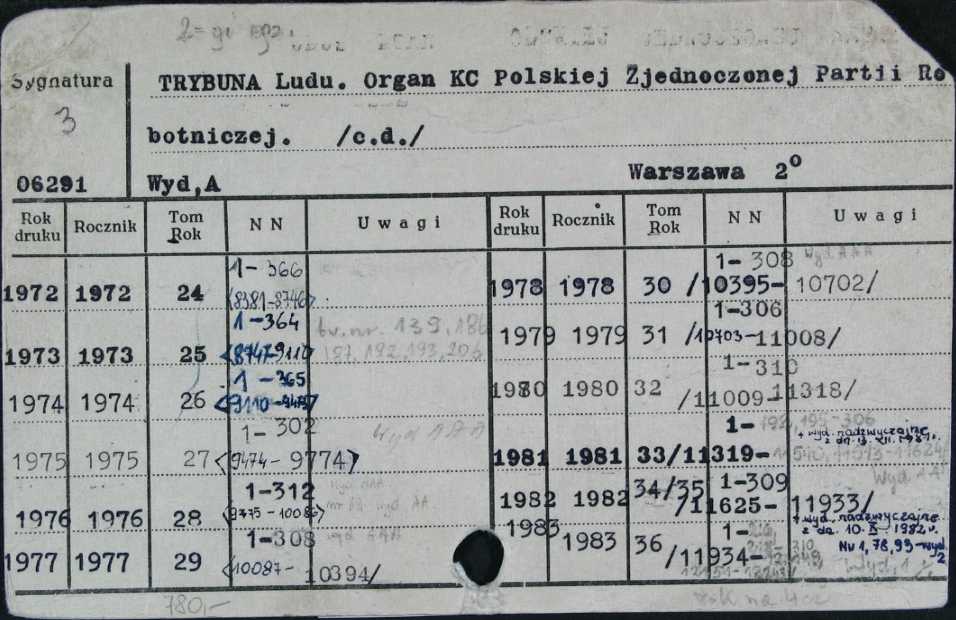 Sygnatura
3
06291
TRYBUNA Ludu. Organ KC Polskiej Zjednoczonej Partii Ro
botniczej. /c.d./
Wyd,A Warszawa 2º
Rok druku Rocznik Tom Rok NN Uwagi Rok druku Rocznik Tom Rok NN Uwagi
1972 1972 24 1-366 <8381-8746>
1973 1973 25 1-364 <8747-9110>
br. nr. 139, 186
187, 192, 193, 206
1974 1974 26 1-365 <9110-
1975 1975 27 1-302 <9474-9774>
Wyd AAA
1976 1976 28 1-312 <9775-10086>
1977 1977 29 1-308 <10087-10394/
1978 1978 30 1-308 /10395-10702/
Wyd AAA
1979 1979 31 1-306 /10703-11008/
1980 1980 32 1-310 /11009-11318/
1981 1981 33 1- /11319-
195-306
+ wyd. nadzwyczajne
z dn. 13. XII. 1981 r.
1982 1982 34/35 1-309 /11625-11933/
+ wyd. nadzwyczajne
z dn. 10. 1982 r.
1983 1983 36 1- /11934-
Nr 1, 78, 93-wyd. 2
780,-